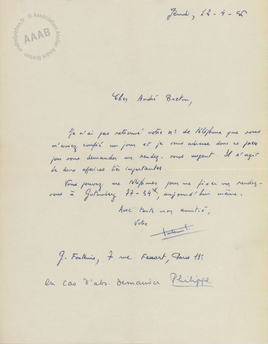 AAAB
Jeudi, 22-4-
Cher André Breton,
Je n'ai pas retrouvé votre n° de téléphone que vous
m'aviez confié un jour et je vous adresse donc ce pneu
pour vous demander un rendez-vous urgent. Il s'agit
de deux affaires très importantes
Vous pouvez me téléphoner pour me fixer un rendez-
vous à Gutenberg 77-34, aujourd'hui même.
Avec toute mon amitié,
Votre
G. , 7 rue Fessart, Paris 19
en cas d'abs. demander Philippe